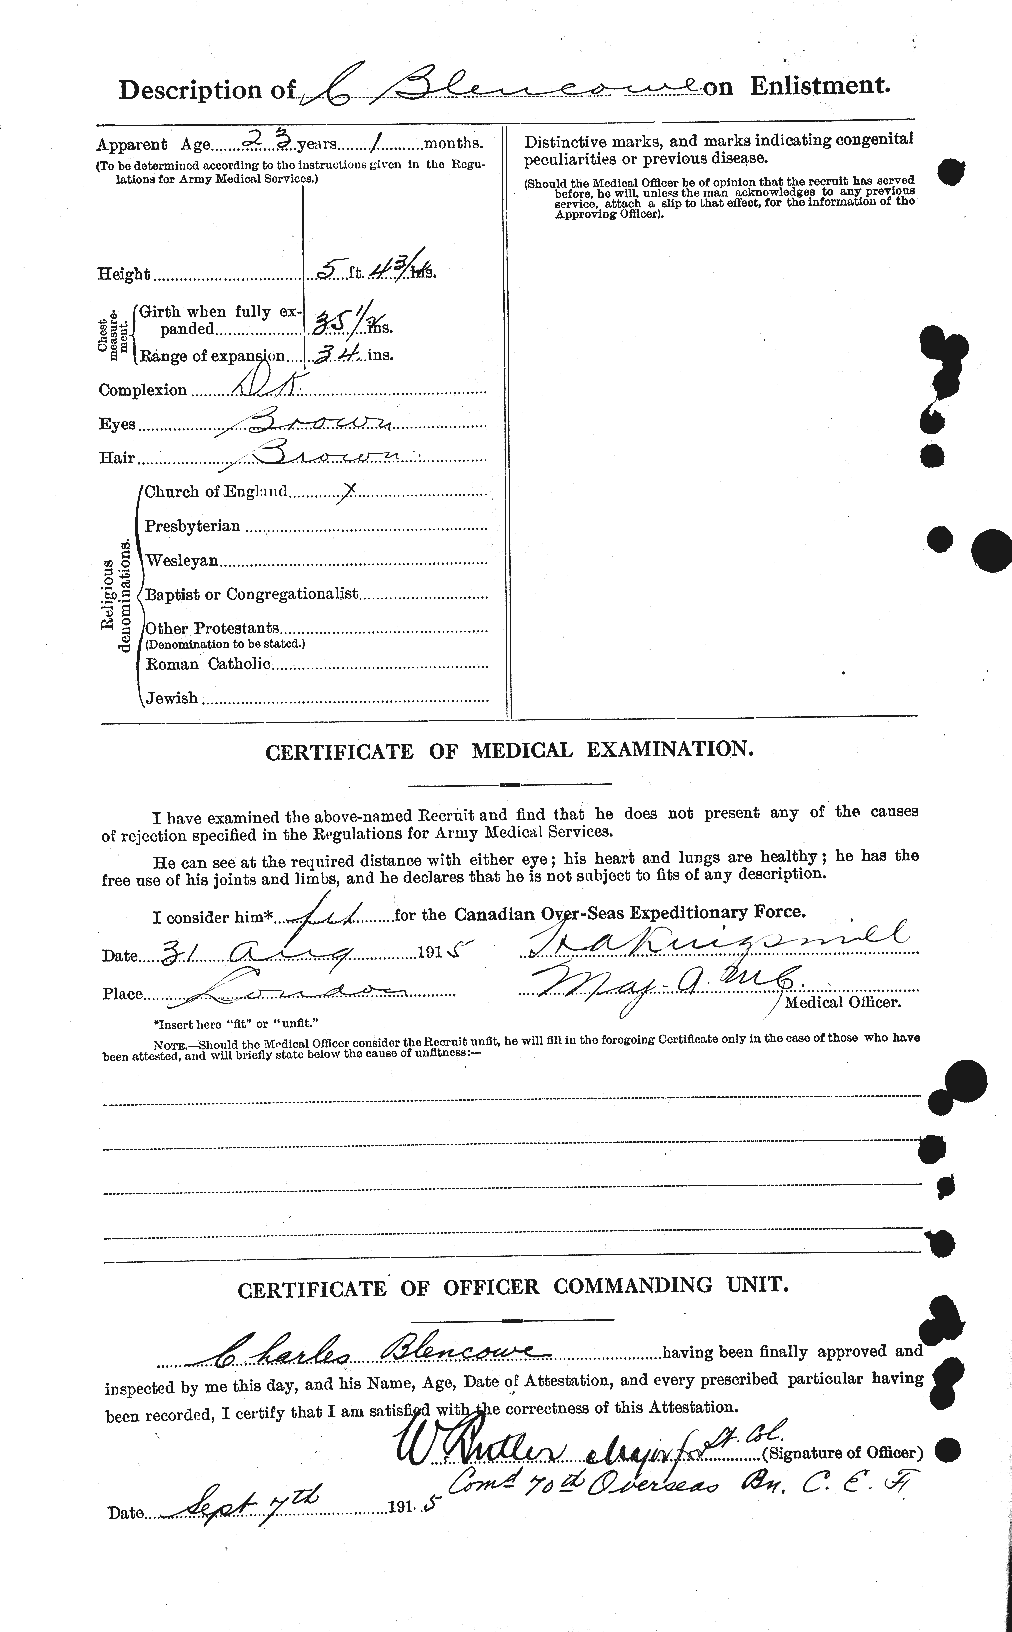 Description of C Blencowe on Enlistment.
Apparent Age 23 years 1 months.
(To be determined according to the instructions given in the Regu-
lations for Army Medical Services.)
Height 5 ft. 4 3/4 ins.
Chest measure-ment.
Girth when fully ex-
panded 35 1/2 ins.
Range of expansion 34 ins.
Complexion DK
Eyes Brown
Hair Brown
Religious denominations.
Church of England X
Presbyterian
Wesleyan
Baptist or Congregationalist
Other Protestants
(Denomination to be stated.)
Roman Catholic
Jewish
Distinctive marks, and marks indicating congenital
peculiarities or previous disease.
(Should the Medical Officer be of opinion that the recruit has served
before, he will, unless the man acknowledges to any previous
service, attach a slip to that effect, for the information of the
Approving Officer).
CERTIFICATE OF MEDICAL EXAMINATION.
I have examined the above-named Recruit and find that he does not present any of the causes
of rejection specified in the Regulations for Army Medical Services.
He can see at the required distance with either eye; his heart and lungs are healthy; he has the
free use of his joints and limbs, and he declares that he is not subject to fits of any description.
I consider him* fit for the Canadian Over-Seas Expeditionary Force.
Date 31 Aug 1915 Kingsmill
Place London Maj. A.M.C.
Medical Officer.
*Insert here "fit" or "unfit."
NOTE.—Should the Medical Officer consider the Recruit unfit, he will fill in the foregoing Certificate only in the case of those who have
been attested, and will briefly state below the cause of unfitness:—
CERTIFICATE OF OFFICER COMMANDING UNIT.
Charles Blencowe having been finally approved and
inspected by me this day, and his Name, Age, Date of Attestation, and every prescribed particular having
been recorded, I certify that I am satisfied with the correctness of this Attestation.
W Butler Major for Lt. Col. (Signature of Officer)
Comd 70th Overseas Bn. C. E. F.
Date Sept 7th 1915